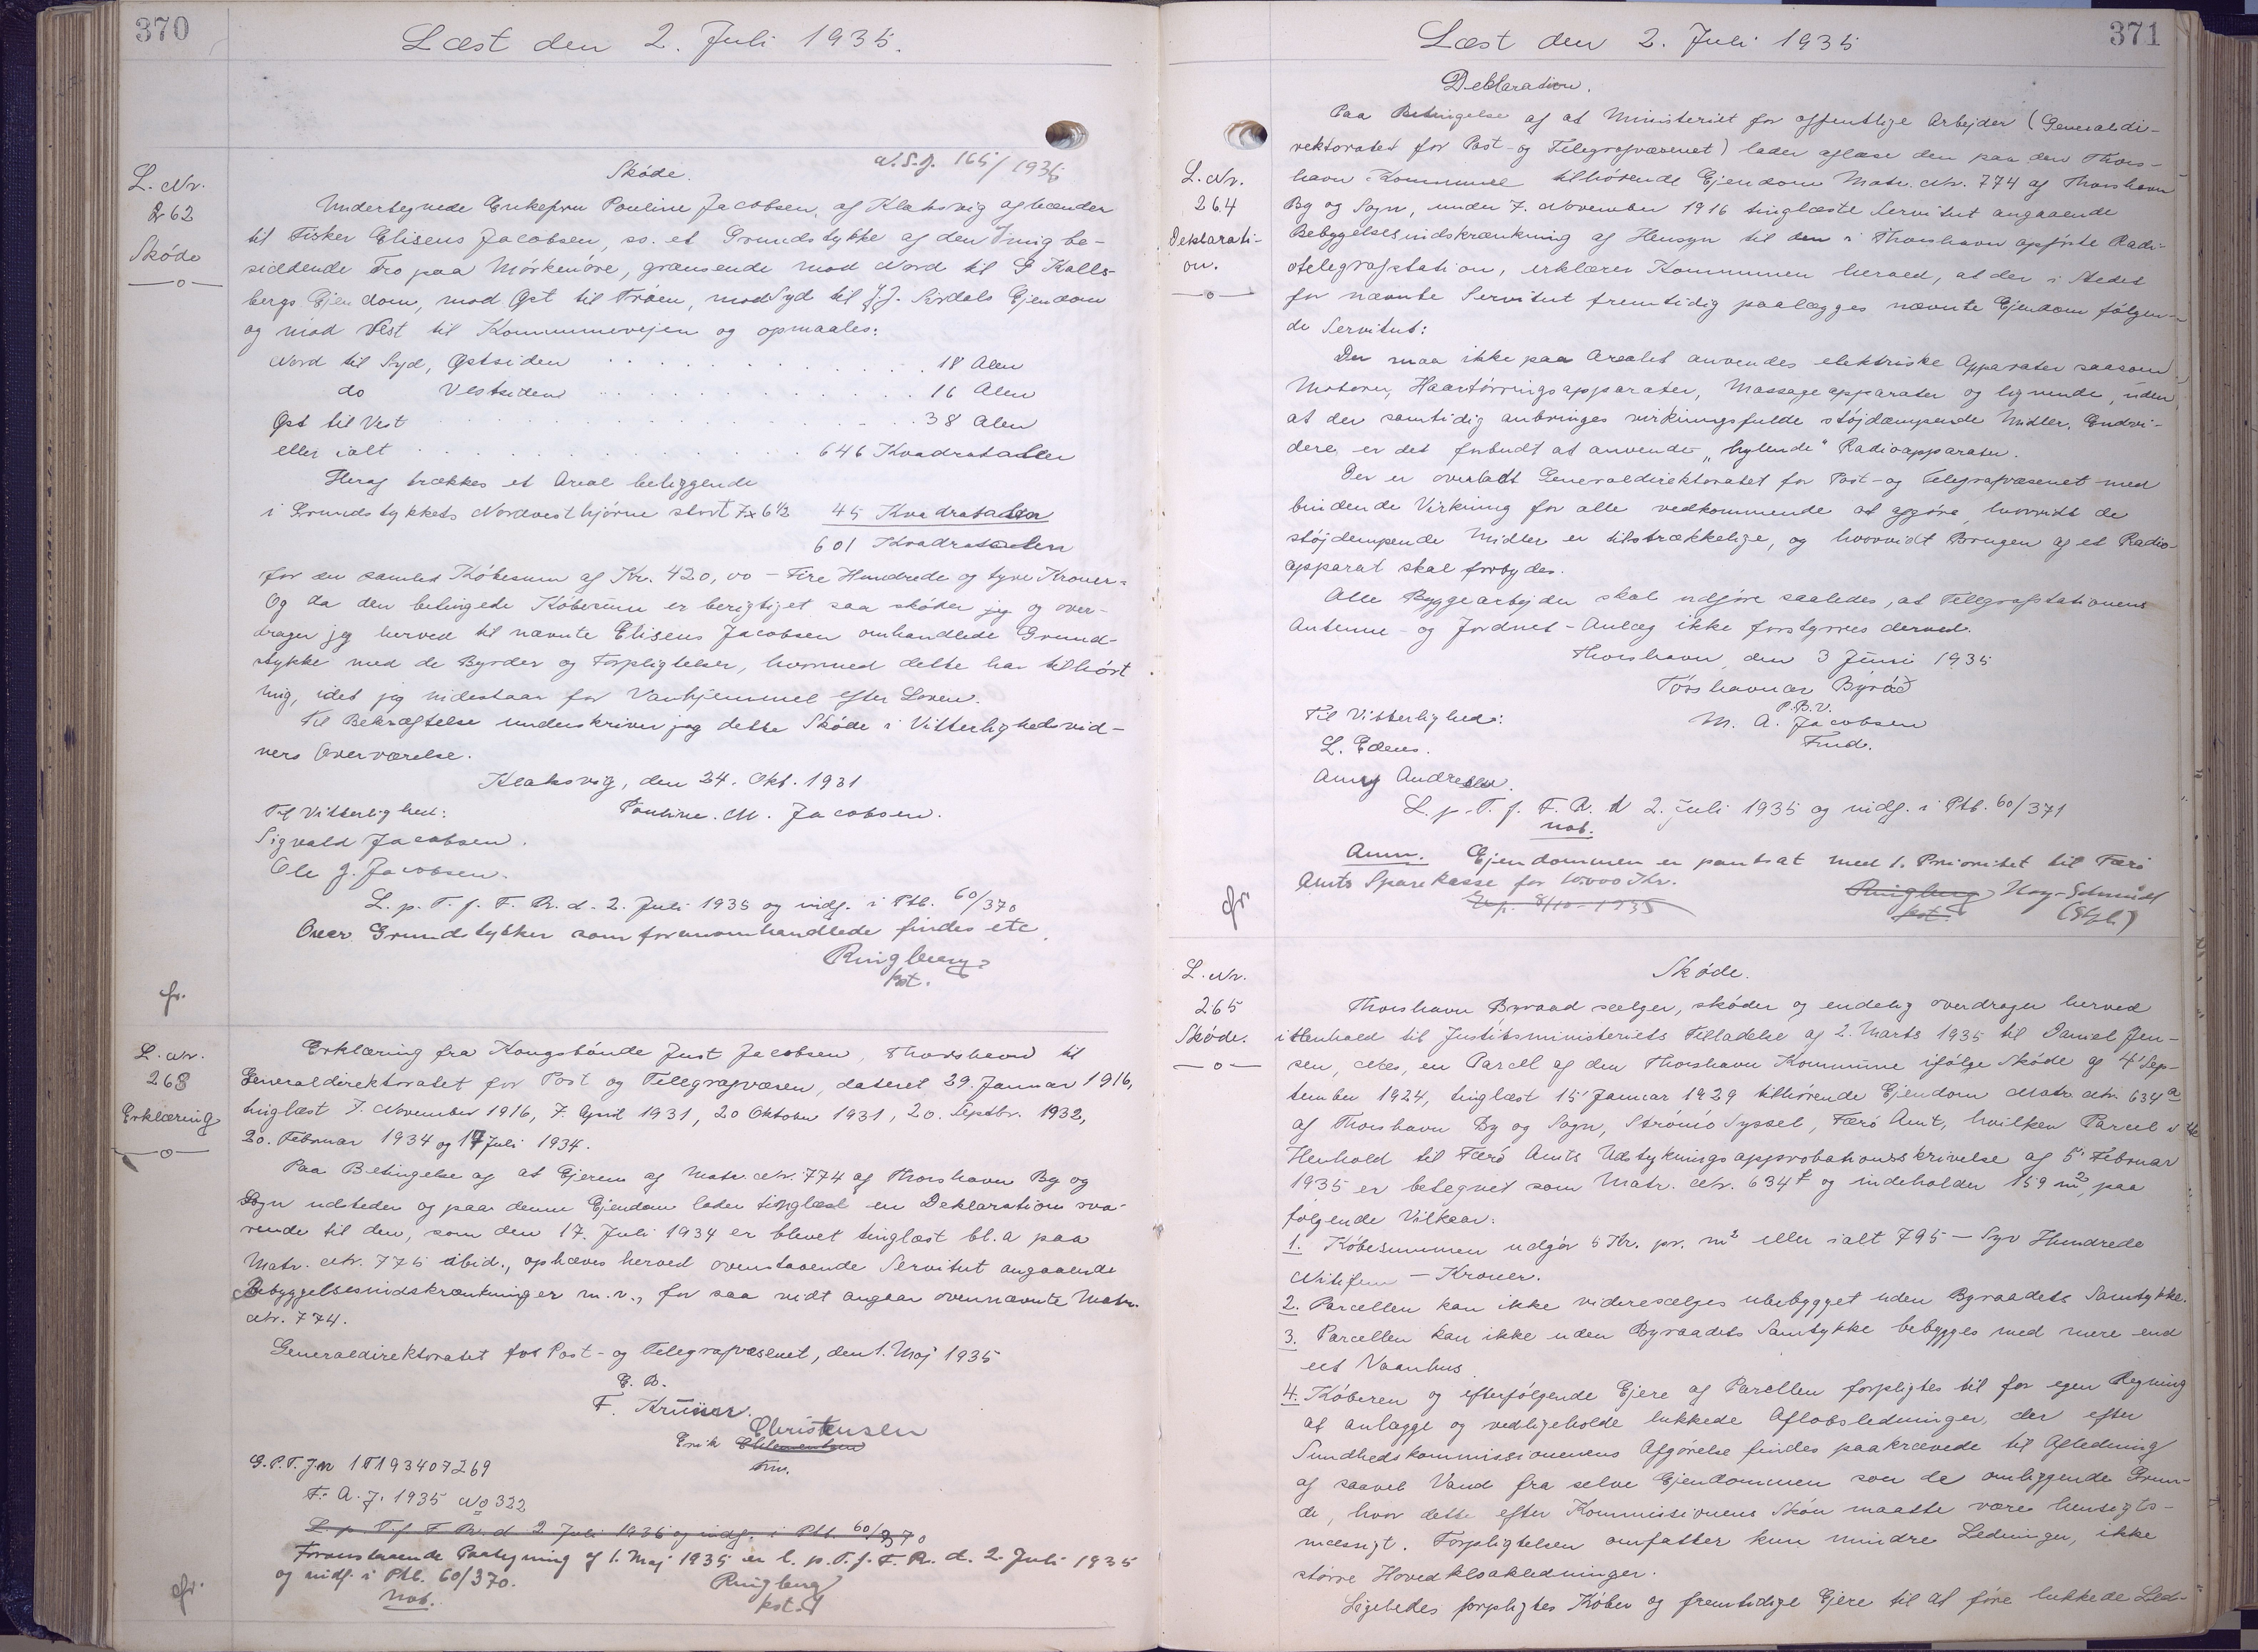 370
Læst den 2. Juli 1935.
A.S.J. 165/1936
L. Nr.
262
Skøde
Skøde.
Undertegnede Enkefru Pouline Jacobsen, af Klaksvig afhænder
til Fisker Elisens Jacobsen, ss. et Grundstykke af den mig be-
siddende Tro paa Mørkenøre, grænsende mod Nord til G Kalls-
bergs Ejendom, mod Øst til Trøen, mod Syd til J.J. Sirdals Ejendom
og mod Vest til Kommunevejen og opmaales:
Nord til Syd, Østsiden 18 Alen
do Vestsiden 16 Alen
Øst til Vest 38 Alen
eller ialt 646 Kvadratalen
Heraf trækkes et Areal beliggende
i Grundstykkets Nordvesthjørne stort 7x6½ 45 Kvadratalen
601 Kvadratalen
for den samlede Købesum af Kr. 420,00 – Fire Hundrede og tyve Kroner =
Og da den betingede Købesum er berigtiget saa skøder jeg og over-
drager jeg herved til nævnte Elisens Jacobsen omhandlede Grund-
stykke med de Byrder og Forpligtelser, hvormed dette har tilhørt
mig, idet jeg indestaar for Vanhjemmel efter Loven.
Til Bekræftelse underskriver jeg dette Skøde i Vitterlighedsvid-
ners Overværelse.
Klaksvig, den 24. Okt. 1931
Til Vitterlighed: Pouline. M. Jacobsen.
Sigvald Jacobsen.
Ole J. Jacobsen.
L. p. T. f. F. R. d. 2. Juli 1935 og indf. i Ptb. 60/370
Over Grundstykker som foranomhandlede findes etc.
Ringberg
kst.
fr.
L. Nr.
263
Erklæring
Erklæring fra Kongsbonde Just Jacobsen, Thorshavn til
Generaldirektoratet for Post og Telegrafvæsen, dateret 29. Januar 1916,
tinglæst 7. November 1916, 7. April 1931, 20 Oktober 1931, 20. Septbr. 1932,
20. Februar 1934 og 17 Juli 1934.
Paa Betingelse af at Ejeren af Matr. Nr. 774 af Thorshavn By og
Sogn udsteder og paa denne Ejendom lader tinglæst en Deklaration sva-
rende til den, som den 17. Juli 1934 er blevet tinglæst bl.a paa
Matr. Nr. 775 ibid., ophæves herved ovenstaaende Servitut angaaende
Bebyggelsesindskrænkninger m.v., for saa vidt angaar ovennævnte Matr.
Nr. 774.
Generaldirektoratet for Post- og Telegrafvæsenet, den 1. Maj 1935
E. B.
F. Krüner.
Christensen
Erik
Fm.
G.P.T. J.n 1T193407269
F. A. J. 1935 No 322
L. p. T. f. F R. d 2 Juli 1935 og indf. i Ptb. 60/370
Foranstaaende Paategning af 1. Maj 1935 er l. p. T. f. F. R. d. 2. Juli 1935
og indf. i Ptb. 60/370. Ringberg
nob. kst.
fr.
371
Læst den 2. Juli 1935
L. Nr.
264
Deklarati-
on.
Deklaration.
Paa Betingelse af at Ministeriet for offentlige Arbejder (Generaldi-
rektoratet for Post- og Telegrafvæsenet) lader aflæse den paa den Thors-
havn Kommune tilhørende Ejendom Matr. Nr. 774 af Thorshavn
By og Sogn, under 7. November 1916 tinglæste Servitut angaaende
Bebyggelsesindskrænkning af Hensyn til den i Thorshavn opførte Radi-
otelegrafstation, erklærer Kommunen herved, at der i Stedet
for nævnte Servitut fremtidig paalægges nævnte Ejendom følgen-
de Servitut:
Der maa ikke paa Arealet anvendes elektriske Apparater saasom
Motorer, Haartørringsapparater, Massageapparater og lignende, uden
at der samtidig anbringes virkningsfulde støjdæmpende Midler. Endvi-
dere er det forbudt at anvende „hylende" Radioapparater.
Der er overladt Generaldirektoratet for Post- og Telegrafvæsenet med
bindende Virkning for alle vedkommende at afgøre, hvorvidt de
støjdæmpende Midler er tilstrækkelige, og hvorvidt Brugen af et Radio-
apparat skal forbydes.
Alle Byggearbejder skal udføre saaledes, at Telegrafstationens
Antenne- og Jordnet-Anlæg ikke forstyrres derved.
Thorshavn, den 3 Juni 1935
Tórshavnar Býráð
P.B.V.
Til Vitterlighed: M. A. Jacobsen
L. Edens. Fmd.
Amy Andreasen.
L. p. T. f. F. R. d 2. Juli 1935 og indf. i Ptb. 60/371
nob.
Anm. Ejendommen er pantsat med 1. Prioritet til Færø
Amts Sparekasse for 10.000 Kr.
8/10 - 1935
Ringberg Hoy-Schmidt
kst.
fr.
L. Nr.
265
Skøde.
Skøde.
Thorshavn Byraad sælger, skøder og endelig overdrager herved
i Henhold til Justitsministeriets Tilladelse af 2. Marts 1935 til Daniel Jen-
sen, ibd., en Parcel af den Thorshavn Kommune ifølge Skøde af 4' Sep-
tember 1924, tinglæst 15' Januar 1929 tilhørende Ejendom Matr. Nr. 634a
af Thorshavn By og Sogn, Strømø Syssel, Færø Amt, hvilken Parcel i
Henhold til Færø Amts Udstykningsapprobationsskrivelse af 5' Februar
1935 er betegnet som Matr. Nr. 634f og indeholder 159 m², paa
følgende Vilkaar:
1. Købesummen udgør 5 Kr. pr. m² eller ialt 795 – Syv Hundrede
Nitifem – Kroner.
2. Parcellen kan ikke videresælges ubebygget uden Byraadets Samtykke.
3. Parcellen kan ikke uden Byraadets Samtykke bebygges med mere end
eet Vaanhus
4. Køberen og efterfølgende Ejere af Parcellen forpligtes til for egen Regning
at anlægge og vedligeholde lukkede Afløbsledninger, der efter
Sundhedskommissionens Afgørelse findes paakrævede til Afledning
af saavel Vand fra selve Ejendommen som de omliggende Grun-
de, hvor dette efter Kommissionens Skøn maatte være hensigts-
mæssigt. Forpligtelsen omfatter kun mindre Ledninger, ikke
større Hovedkloakledninger.
Ligeledes forpligtes Køber og fremtidige Ejere til at føre lukkede Led-